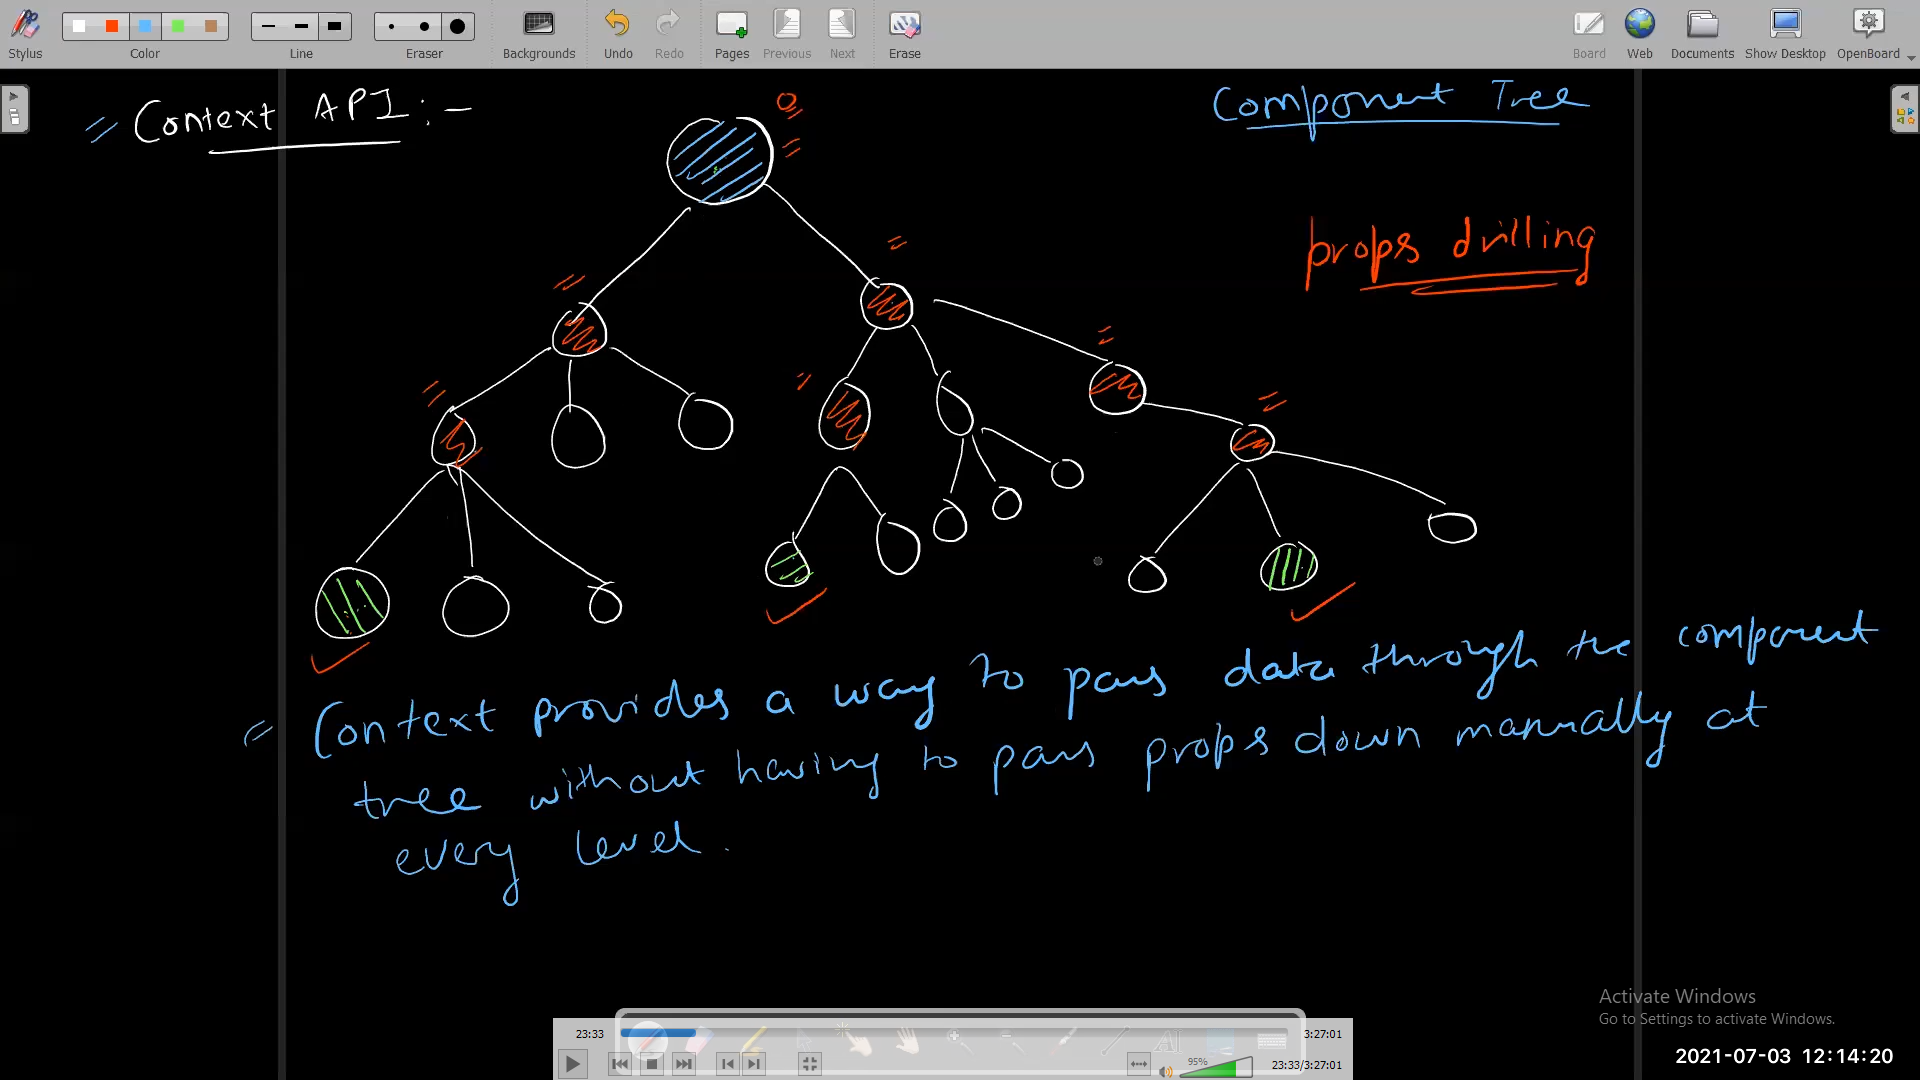 Stylus
Color
Line
Eraser
Backgrounds
Undo
Redo
Pages
Previous
Next
Erase
Board
Web
Documents
Show Desktop
OpenBoard
Context API :-
Component Tree
props drilling
Context provides a way to pass data through the component
tree without having to pass props down manually at
every level.
Activate Windows
Go to Settings to activate Windows.
23:33
3:27:01
95%
23:33/3:27:01
2021-07-03 12:14:20